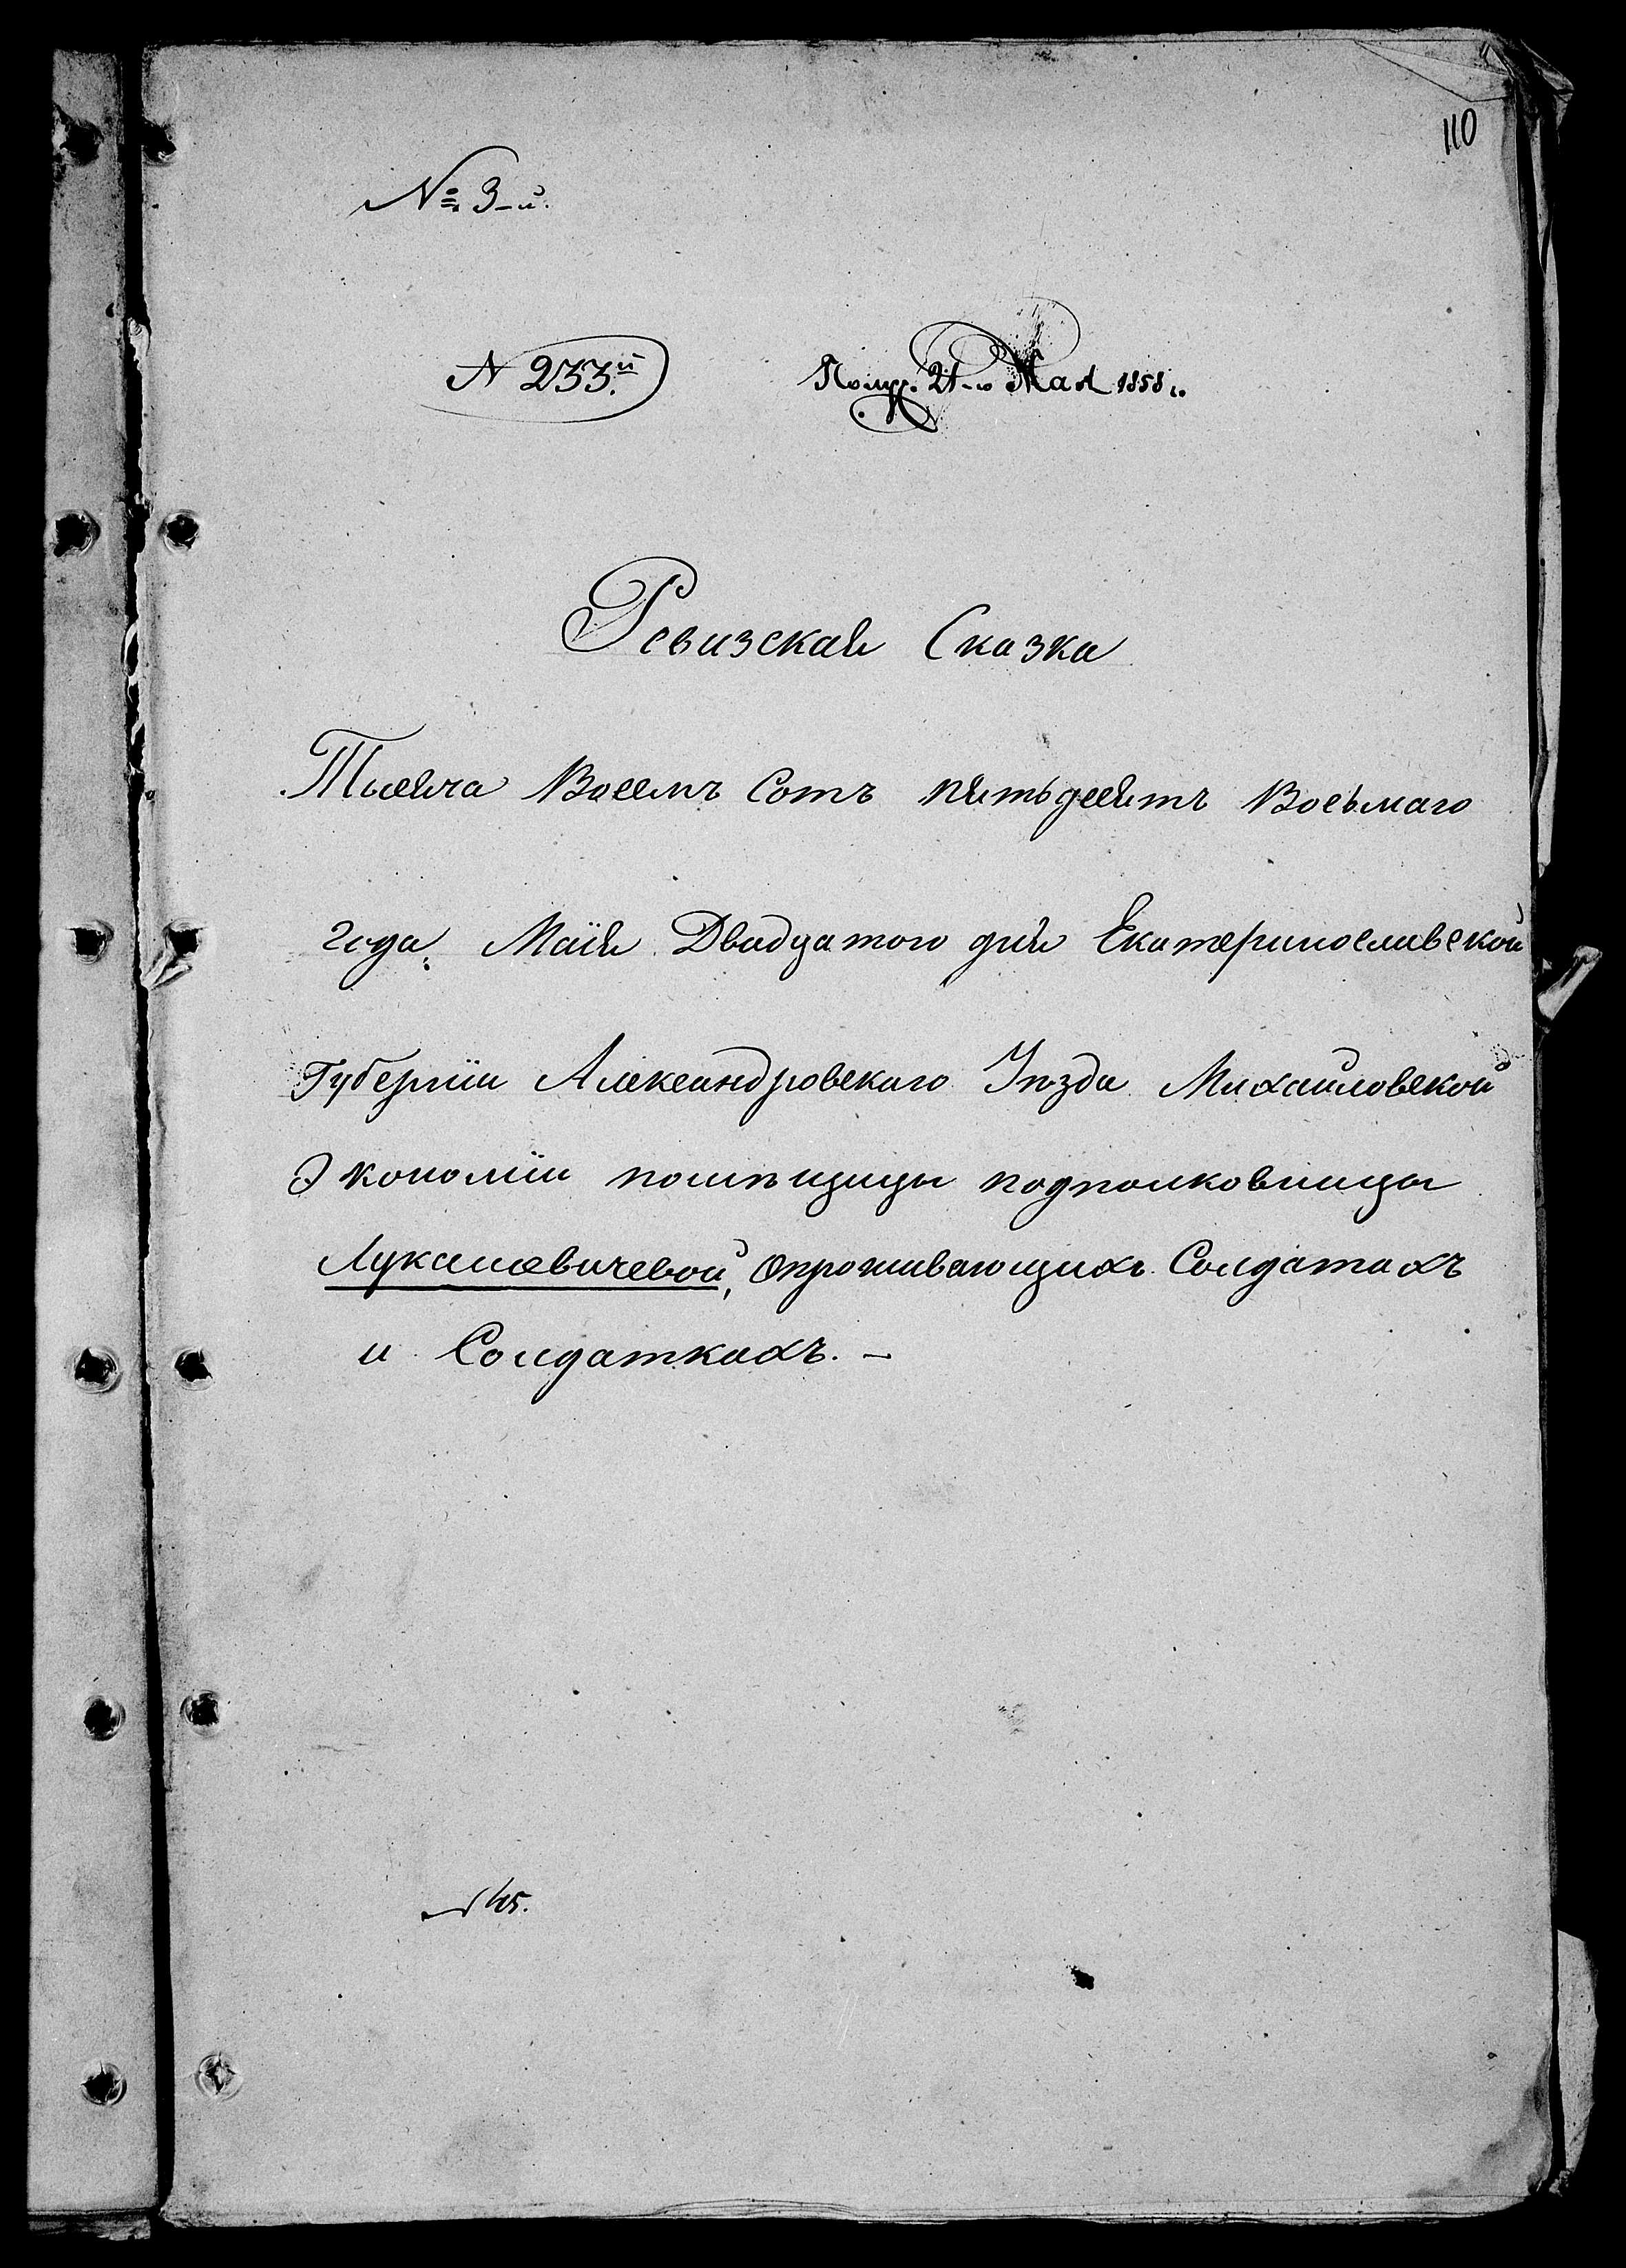 110
№ 3-й.
N 233.й Получ. 21-го Мая 1858 г.
Ревизская Сказка
Тысяча Восемъ Сотъ пятьдесятъ Восьмаго
года, Маія Двадцатого дня Екатеринославской
Губерніи Александровскаго Уѣзда Михайловской
Экономіи помѣщицы подполковницы
Лукашевичевой, опроживающихъ Солдатахъ
и Солдаткахъ. –